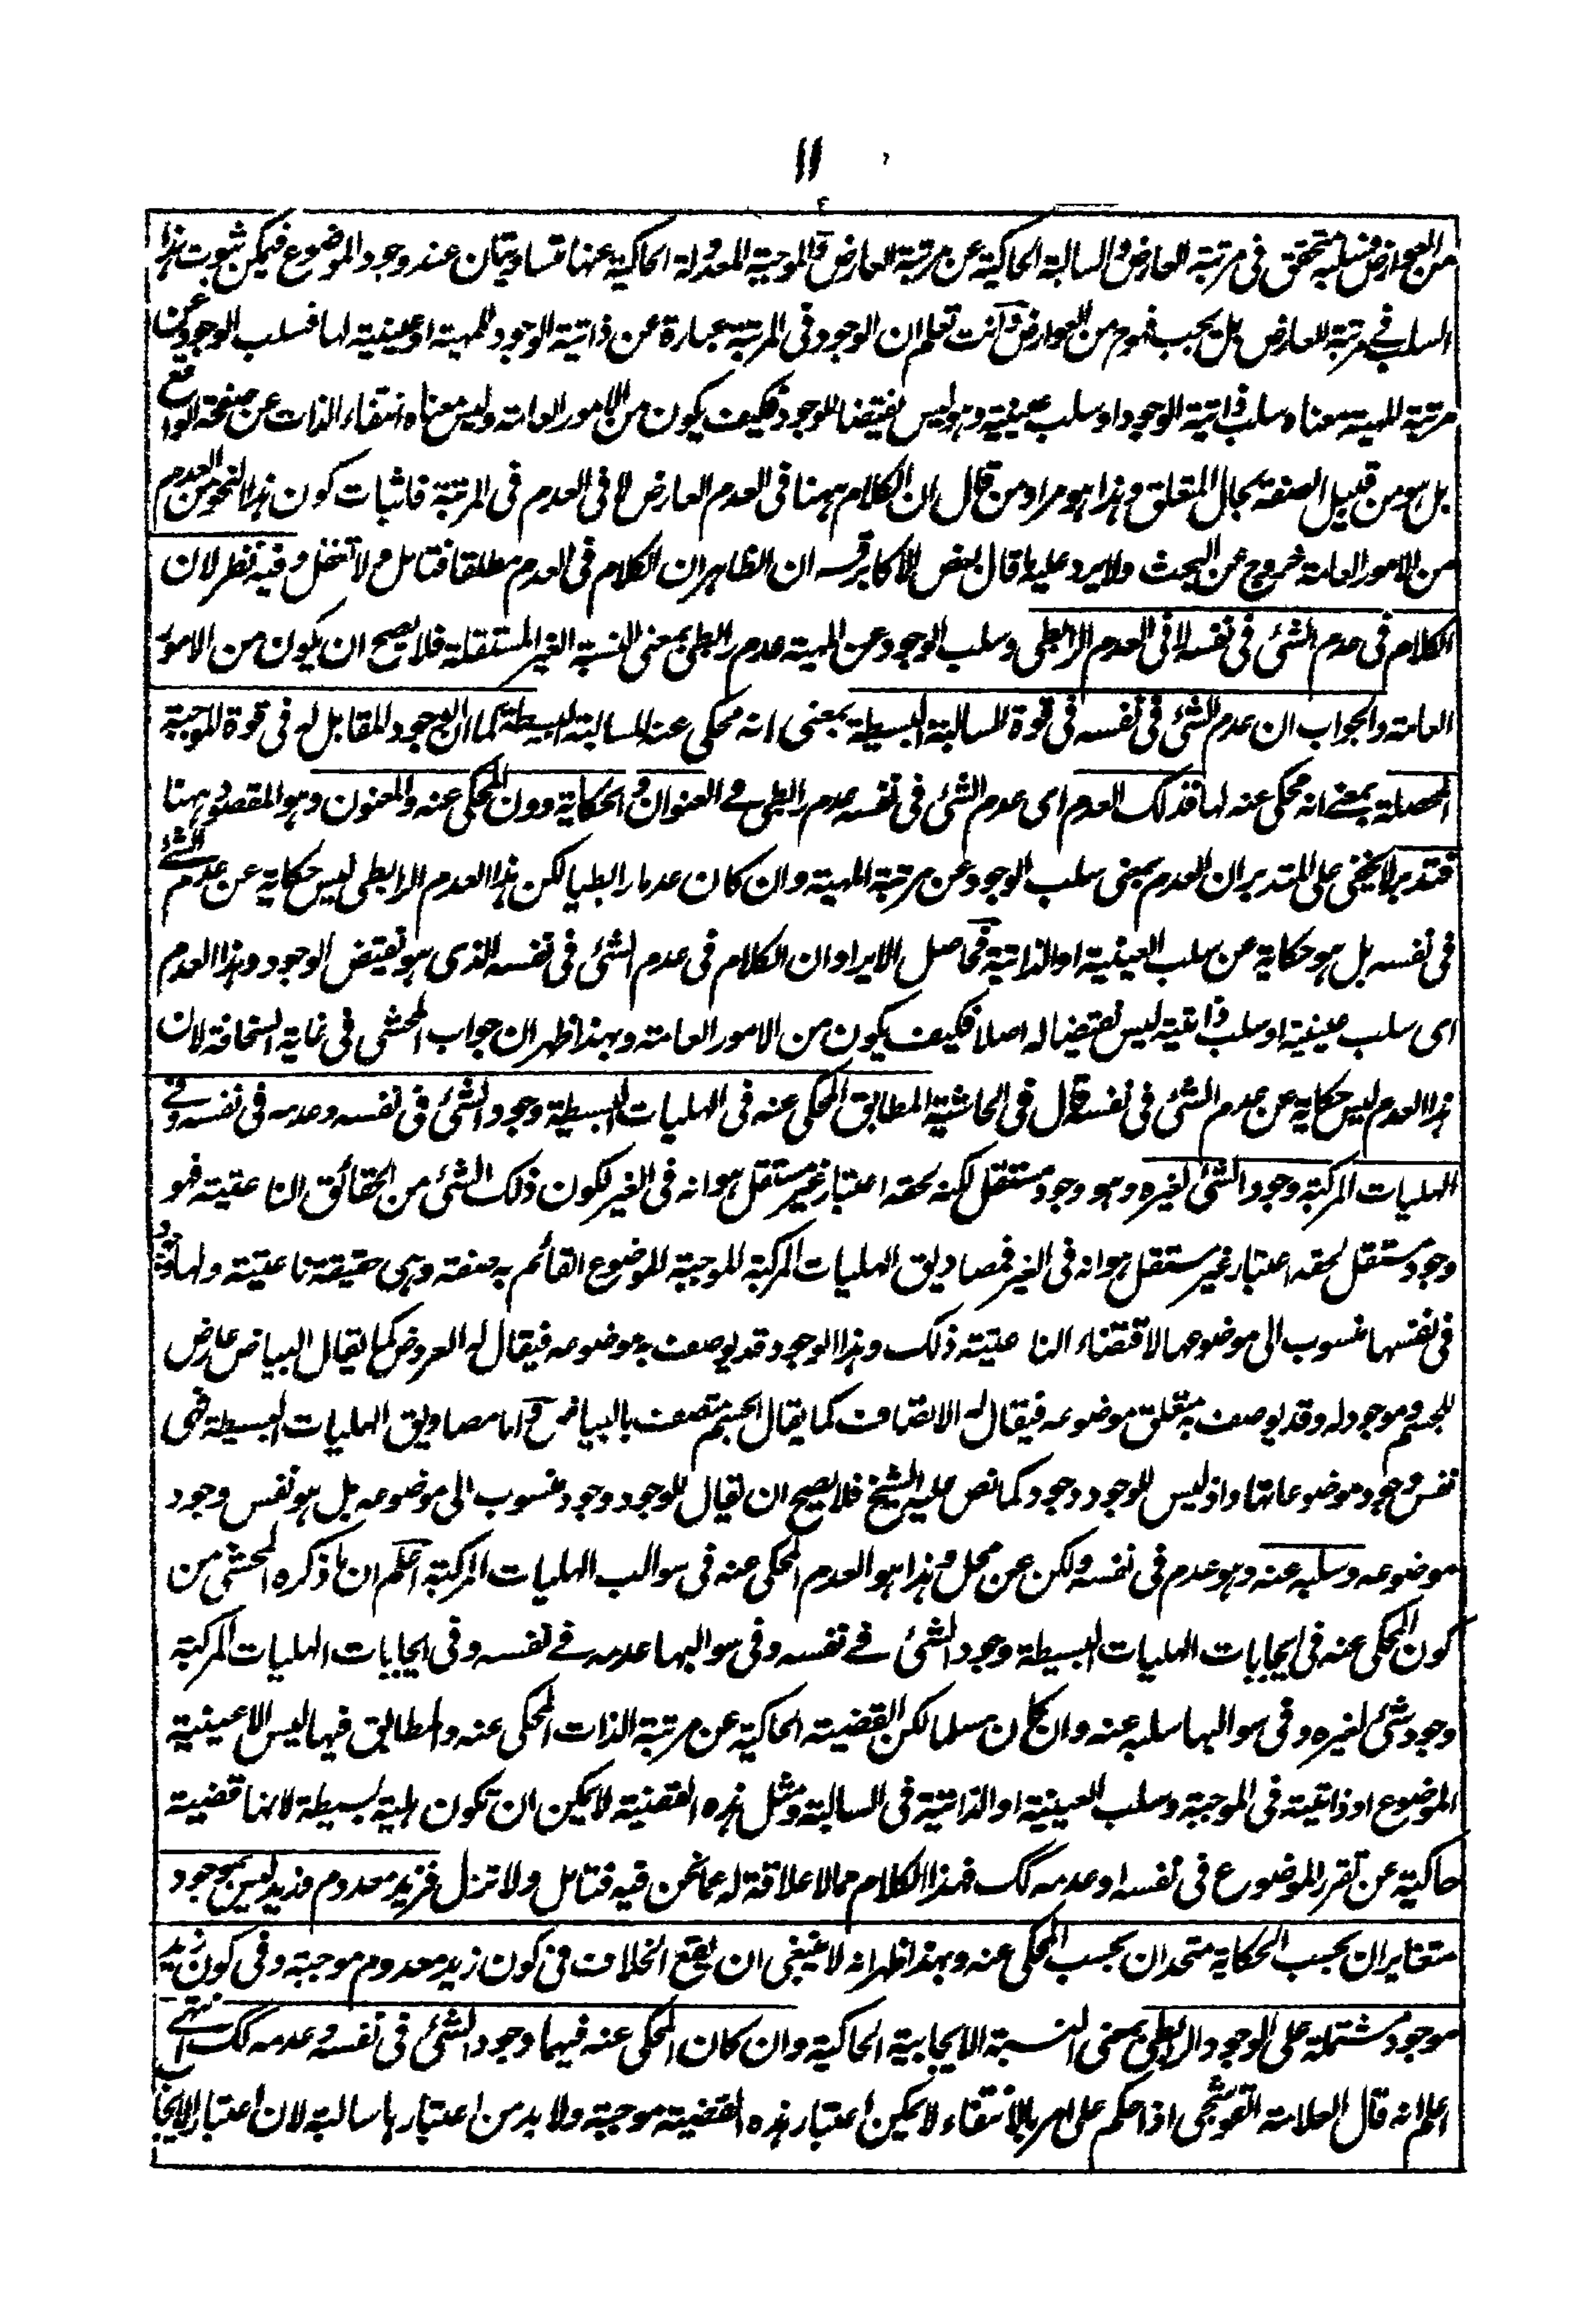 ١١
من العوارض فسلبه متحقق فى مرتبة العارض والسالبة الحاكية عن مرتبة العارض والموجبة المعدولة الحاكية عنها متساويتان عند وجود الموضوع فيمكن ثبوت هذا
السلب فے مرتبة العارض بل يجب فهو من العوارض وانت تعلم ان الوجود فى المرتبة عبارة عن ذاتية الوجود للمهية او عينية لها فسلب الوجود عن
مرتبة المهية معناه سلب ذاتية الوجود او سلب عينية وهو ليس نقيضا للوجود فكيف يكون من الامور العامة وليس معناه انتفاء الذات عن صفحة الواقع
بل هو من قبيل الصفة بحال المتعلق وهذا هو مراد من قال ان الكلام ههنا فى العدم العارض لا فى العدم فى المرتبة فاثبات كون هذا النحو من العدم
من الامور العامة خروج عن البحث ولا يرد عليه ما قال بعض الاكابر قسه ان الظاهر ان الكلام فى العدم مطلقا فتامل ولا تخفل وفيه نظر لان
الكلام فى عدم الشئ فى نفسه لا فى العدم الرابطى وسلب الوجود عن المهية عدم رابطى بمعنى النسبة الغير المستقلة فلا يصح ان يكون من الامور
العامة والجواب ان عدم الشئ فى نفسه فى قوة السالبة البسيطة بمعنى انه محكى عنه للسالبة البسيطة كما ان الوجود المقابل له فى قوة الموجبة
المحصلة بمعنے انه محكى عنه لها فذلك العدم اى عدم الشئ فى نفسه عدم رابطى فے العنوان والحكاية دون المحكى عنه والمعنون وهو المقصود ههنا
فتدبر لا يخفى على المتدبر ان العدم بمعنى سلب الوجود عن مرتبة المهية وان كان عدما رابطيا لكن هذا العدم الرابطى ليس حكاية عن عدم الشئ
فى نفسه بل هو حكاية عن سلب العينية او الذاتية فحاصل الايراد ان الكلام فى عدم الشئ فى نفسه الذى هو نقيض الوجود وهذا العدم
اى سلب عينية او سلب ذاتية ليس نقيضا له اصلا فكيف يكون من الامور العامة وبهذا ظهر ان جواب المحشى فى غاية السخافة لان
هذا العدم ليس حكاية عن عدم الشئ فى نفسه قال فى الحاشية المطابق المحكى عنه فى الهليات البسيطة وجود الشئ فى نفسه وعدمه فى نفسه وفے
الهليات المركبة وجود الشئ لغيره وهو وجود مستقل لكنه لحقه اعتبار غير مستقل هو انه فى الغير لكون ذلك الشئ من الحقائق الناعتية فهو
وجود مستقل لحقه اعتبار غير مستقل هو انه فى الغير فمصاديق الهليات المركبة الموجبة للموضوع القائم به صفة وهى حقيقة ناعتية ولها وجود
فى نفسها منسوب الى موضوعها لاقتضاء الناعتية ذلك وهذا الوجود قد يوصف به موضوعه فيقال له العروض كما يقال البياض عارض
للجسم وموجود له وقد يوصف به متعلق موضوعه فيقال له الاتصاف كما يقال الجسم متصف بالبياض واما مصاديق الهليات البسيطة فهى
نفس وجود موضوعاتها واذ ليس للوجود وجود كما نص عليه الشيخ فلا يصح ان يقال للوجود وجود منسوب الى موضوعه بل هو نفس وجود
موضوعه وسلبه عنه وهو عدم فى نفسه ولكن عن محل وهذا هو العدم المحكى عنه فى سوالب الهليات المركبة اعلم ان ما ذكره المحشى من
كون المحكى عنه فى ايجابات الهليات البسيطة وجود الشئ فے نفسه وفى سوالبها عدمه فے نفسه وفى ايجابات الهليات المركبة
وجود شئ لغيره وفى سوالبها سلبه عنه وان كان مسلما لكن القضية الحاكية عن مرتبة الذات المحكى عنه والمطابق فيها ليس الا عينية
الموضوع او ذاتيته فى الموجبة وسلب العينية او الذاتية فى السالبة ومثل هذه القضية لا يمكن ان تكون هلية بسيطة لانها قضية
حاكية عن تقرر الموضوع فى نفسه او عدمه كك فهذا الكلام مما لا علاقة له عما نحن فيه فتامل ولا تزل فزيد معدوم وزيد ليس بموجود
متغايران بحسب الحكاية متحدان بحسب المحكى عنه وبهذا ظهر انه لا ينبغى ان يقع الخلاف فى كون زيد معدوم موجبة وفى كون زيد
موجود مشتملة على الوجود الرابطى بمعنى النسبة الايجابية الحاكية وان كان المحكى عنه فيهما وجود الشئ فى نفسه وعدمه كك انتهے
اعلم انه قال العلامة القوشجى اذا حكم على امر بالانتفاء لا يمكن اعتبار هذه القضية موجبة ولا بد من اعتبارها سالبة لان اعتبار الايجا